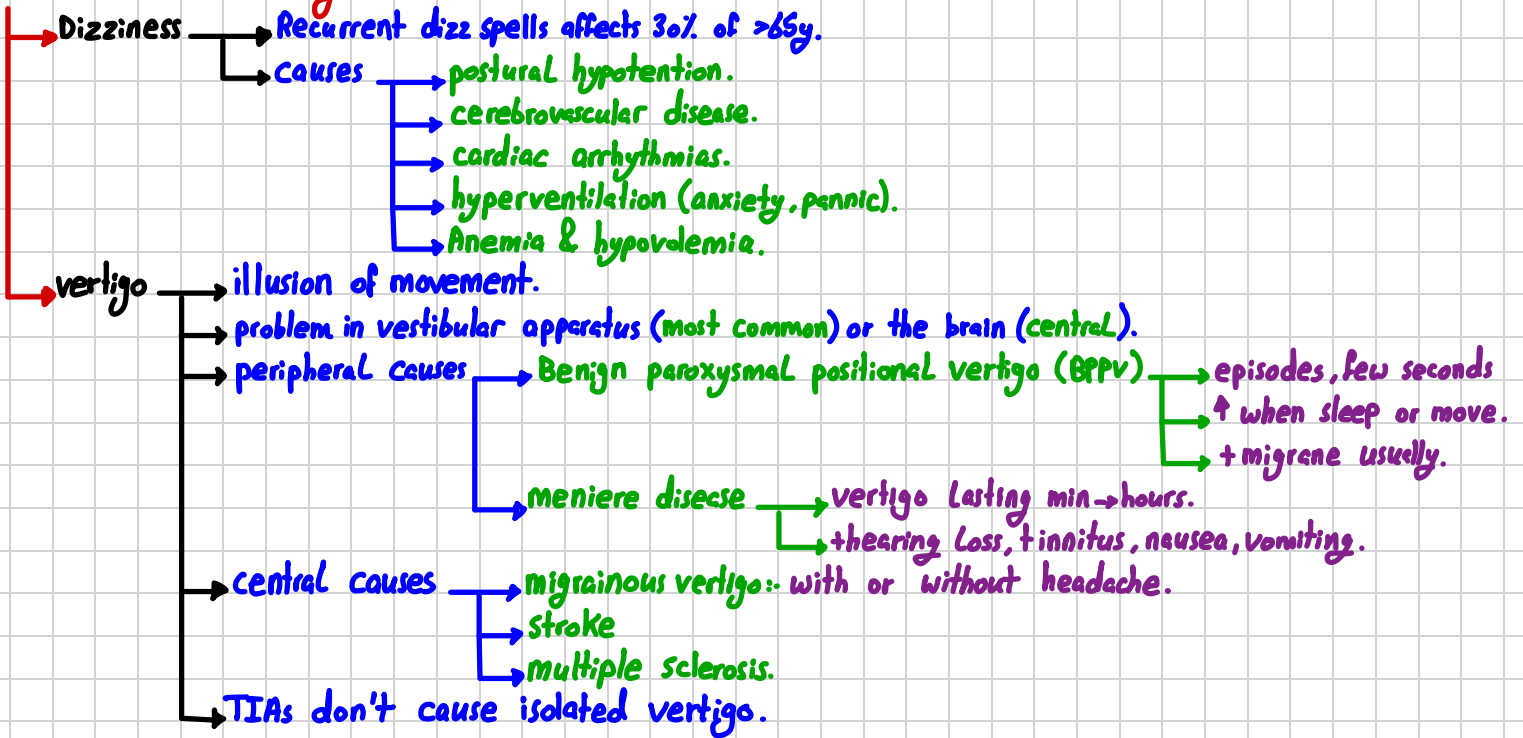 Dizziness → Recurrent dizz spells affects 30% of >65y.
causes → postural hypotention.
cerebrovascular disease.
cardiac arrhythmias.
hyperventilation (anxiety, pannic).
Anemia & hypovolemia.
vertigo → illusion of movement.
problem in vestibular apparatus (most common) or the brain (central).
peripheral causes → Benign paroxysmal positional vertigo (BPPV) → episodes, few seconds
↑ when sleep or move.
+ migrane usually.
meniere disecse → vertigo lasting min → hours.
+ hearing loss, tinnitus, nausea, vomiting.
central causes → migrainous vertigo:- with or without headache.
stroke
multiple sclerosis.
TIAs don't cause isolated vertigo.